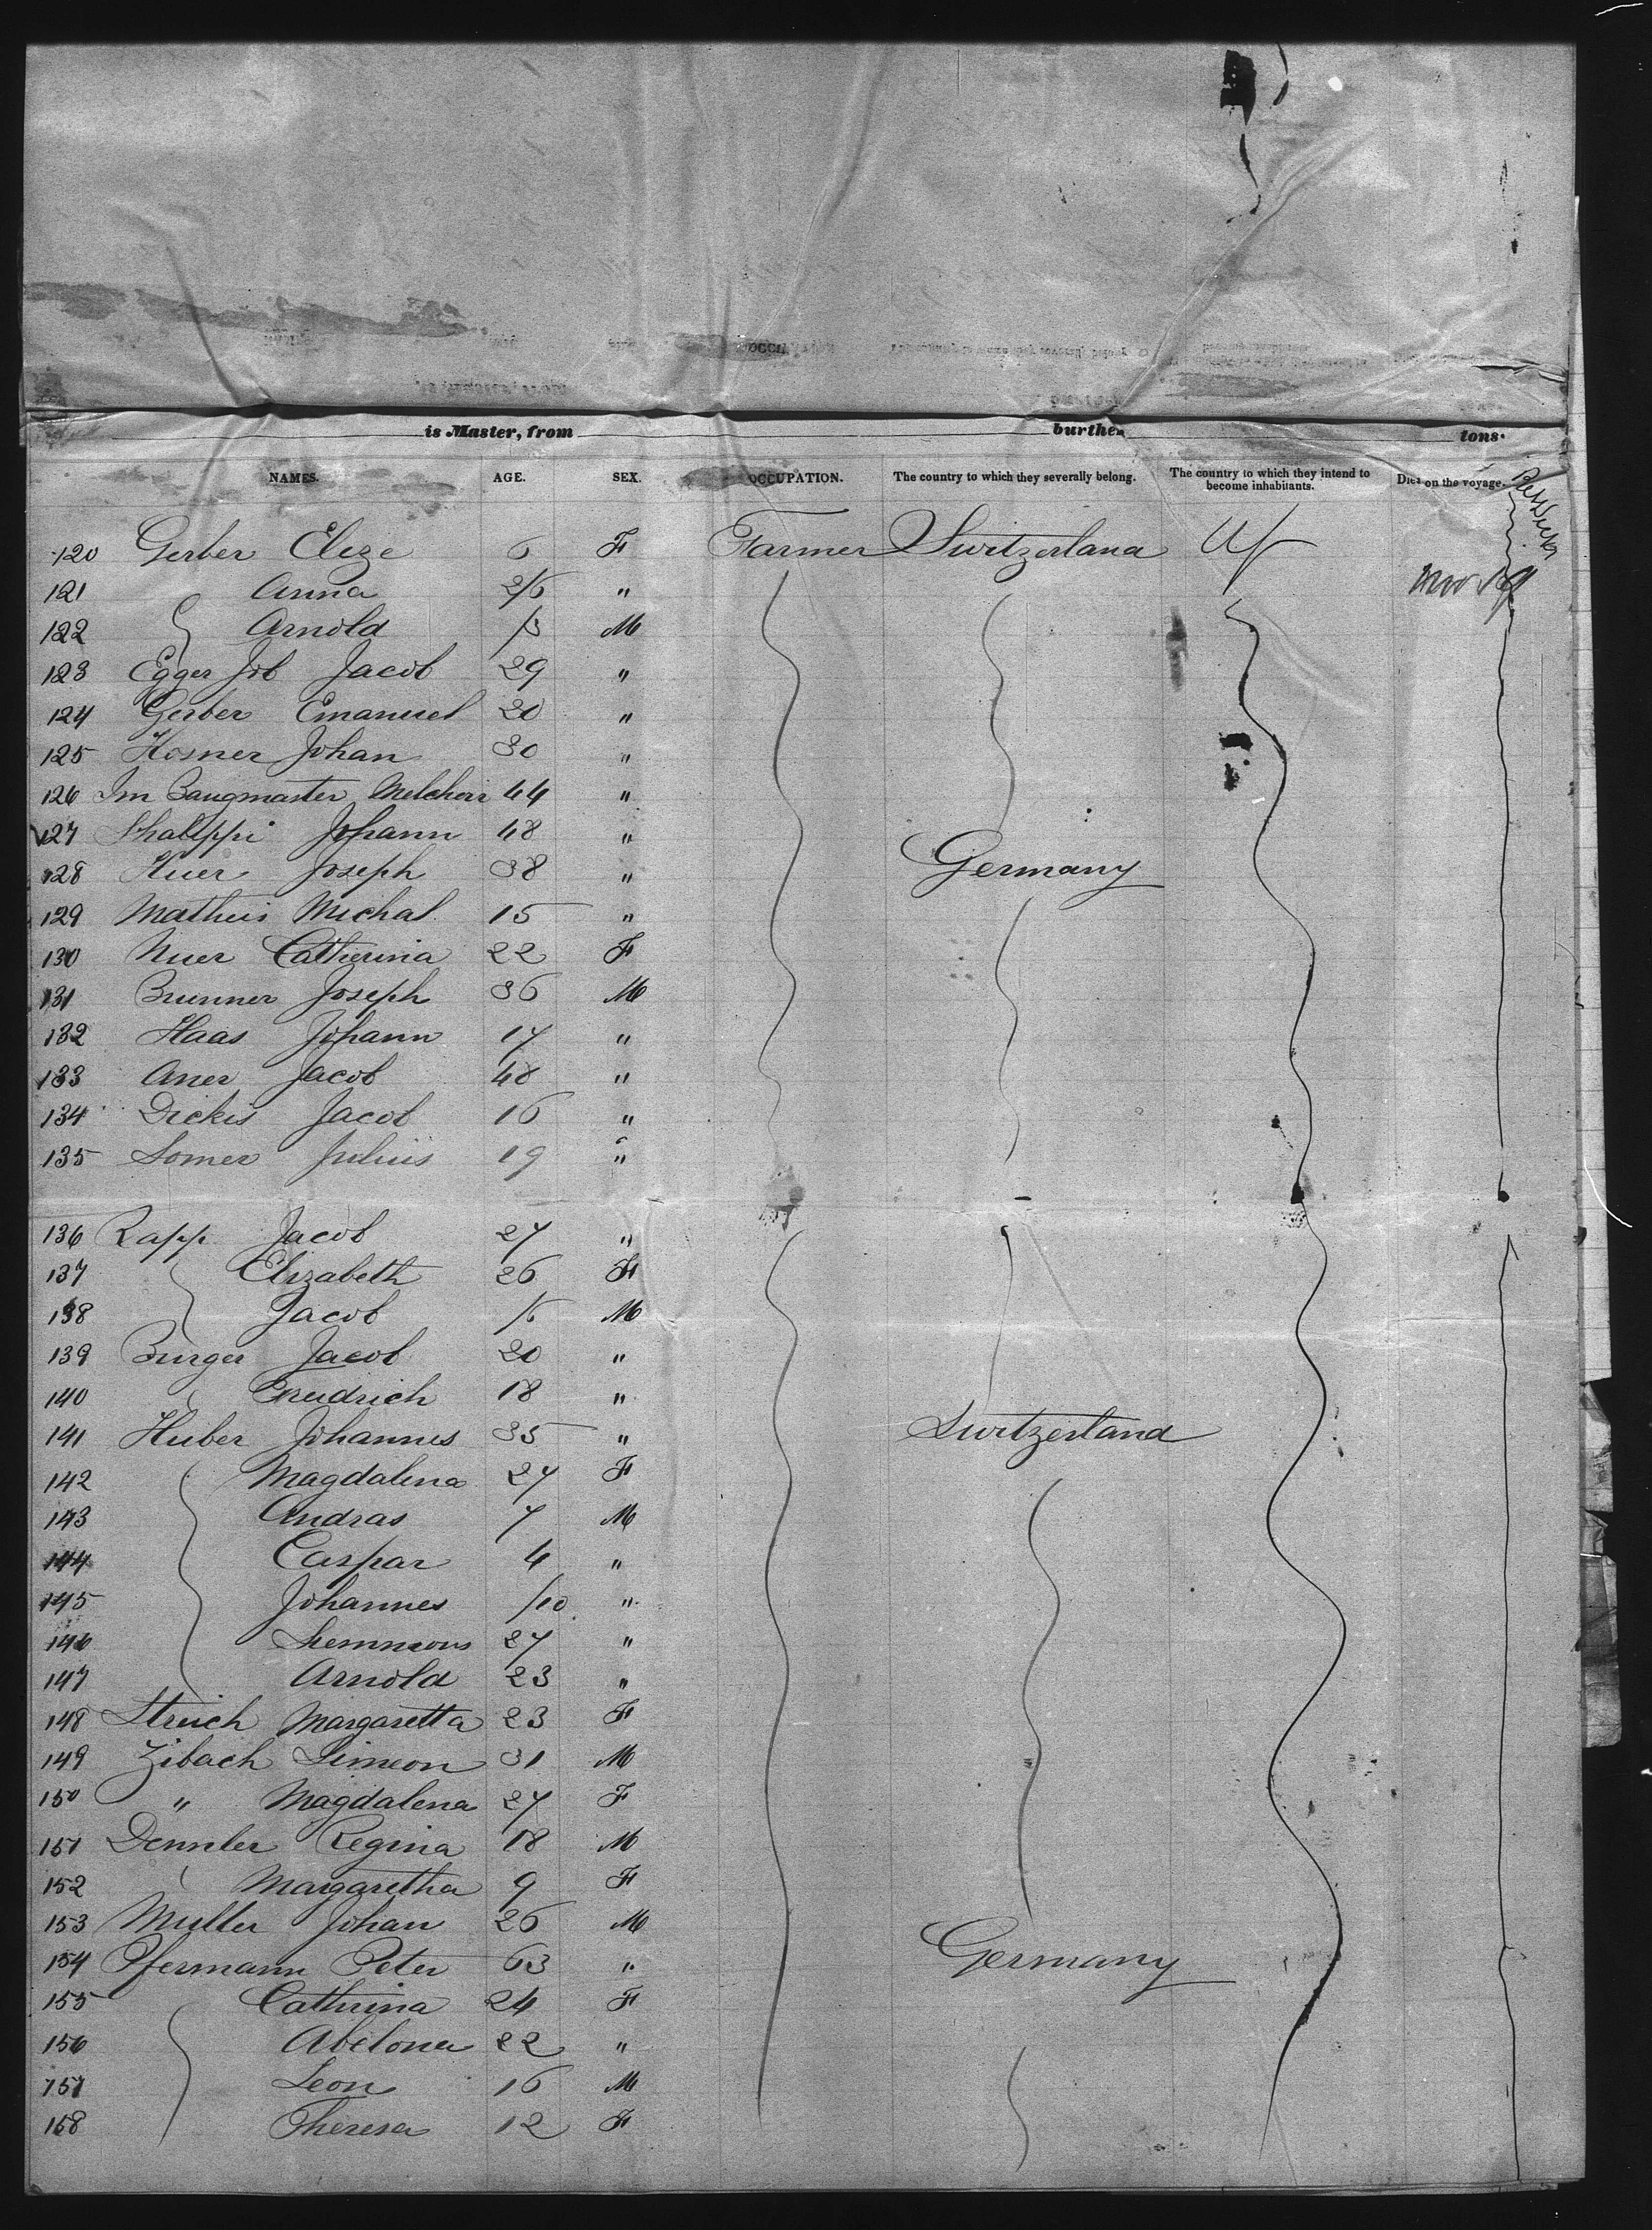 is Master, from burthen tons.
NAMES. AGE. SEX. OCCUPATION. The country to which they severally belong. The country to which they intend to become inhabitants. Died on the voyage.
120 Gerber Elize 6 F Farmer Switzerland
121 Anna 2/6 "
122 Arnold /3 M
123 Egger Job Jacob 29 "
124 Gerber Emanuel 20 "
125 Hosner Johan 30 "
126 Im Baugmaster Melchior 44 "
127 Johann 48 "
128 Huer Joseph 38 " Germany
129 Matheis Michal 15 "
130 Nuer Catherina 22 F
131 Brunner Joseph 36 M
132 Haas Johann 17 "
133 Aner Jacob 48 "
134 Dickis Jacob 16 "
135 Somer Julius 19 "
136 Rapp Jacob 27 "
137 Elizabeth 26 F
138 Jacob /6 M
139 Burger Jacob 20 "
140 Freidrich 18 "
141 Huber Johannes 35 " Switzerland
142 Magdalena 27 F
143 Andras 7 M
144 Caspar 4 "
145 Johannes /10 "
146 27 "
147 Arnold 23 "
148 Streich Margaretta 23 F
149 Zibach Simeon 31 M
150 " Magdalena 27 F
151 Dennler Regina 18 M
152 Margaretha 9 F
153 Muller Johan 26 M
154 Pfermann Peter 63 " Germany
155 Cathrina 24 F
156 Abelona 22 "
157 Leon 16 M
158 Theresa 12 F